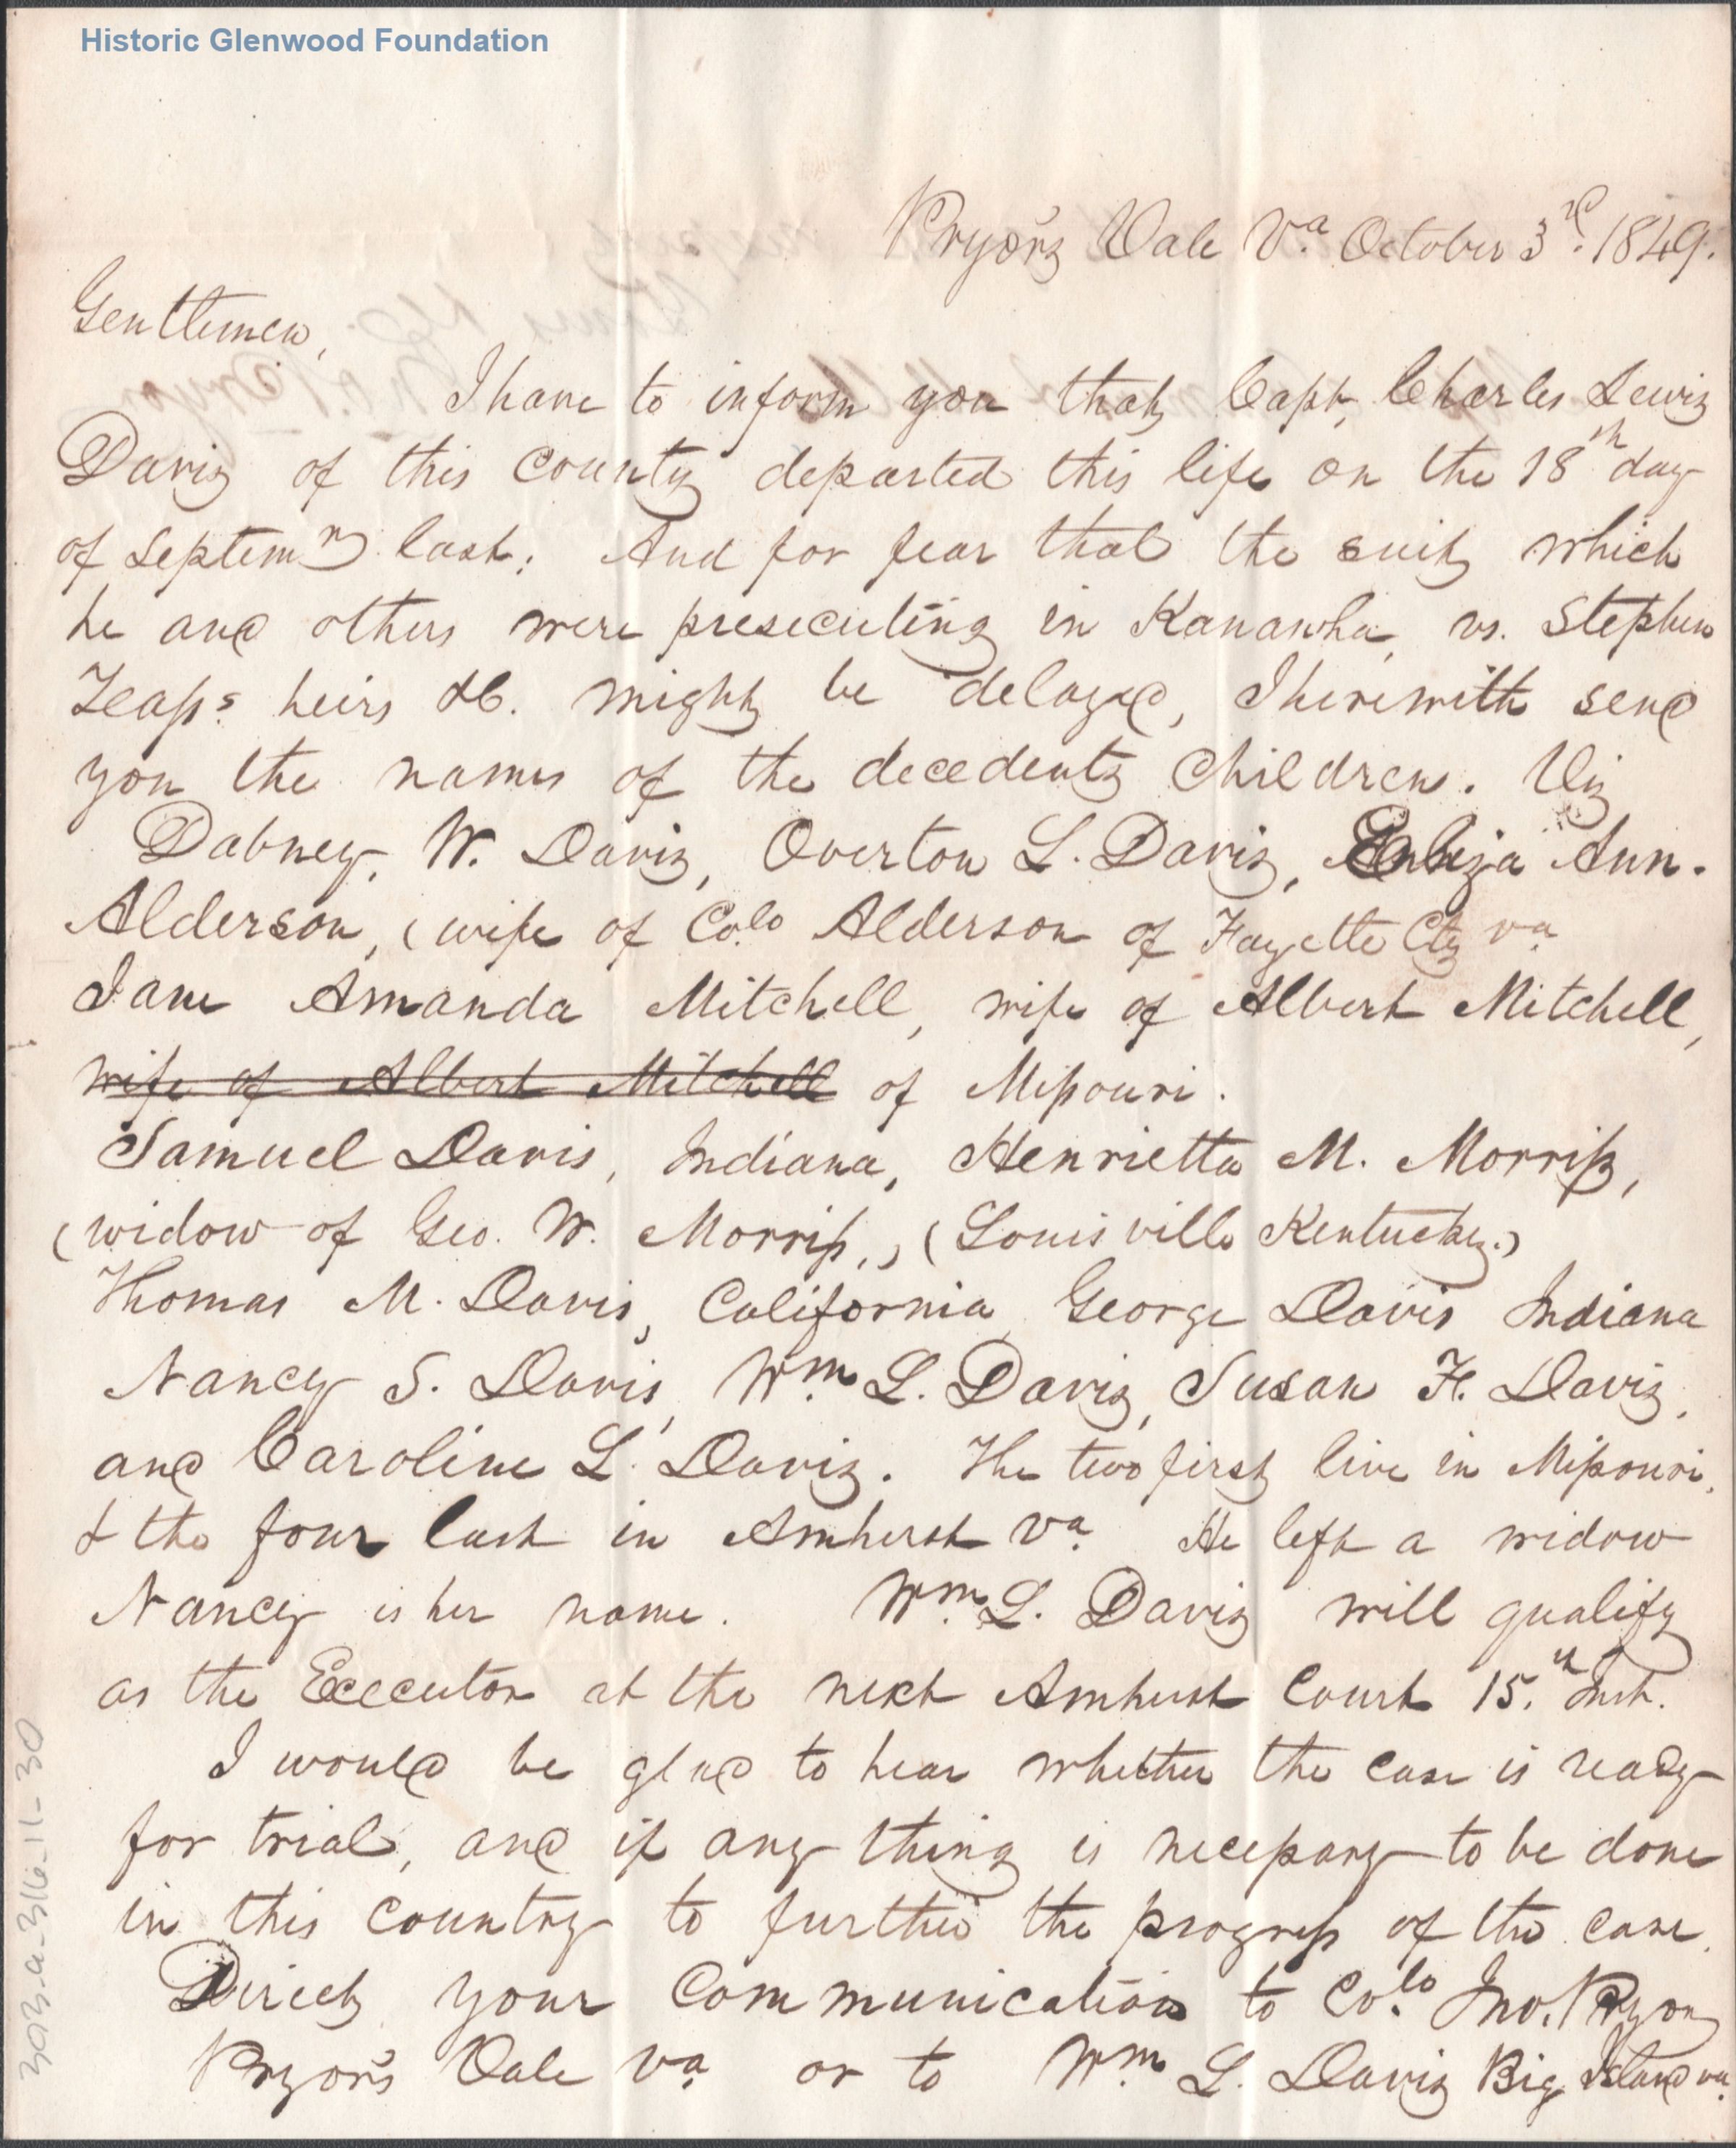 Historic Glenwood Foundation
Pryor's Vale Va. October 3rd. 1849.
Gentlemen,
I have to inform you that Capt. Charles Lewis
Davis of this County departed this life on the 18th day
of Septemr last; And for fear that the suit which
he and others were presecuting in Kanawha, vs. Stephen
Teaps heirs &c. might be delayed, I herewith send
you the names of the decedents Children. Viz
Dabney. W. Davis, Overton L. Davis, Eliza Ann.
Alderson, (wife of Colo Alderson of Fayette Cty va
Jane Amanda Mitchell, wife of Albert Mitchell,
wife of Albert Mitchell of Missouri.
Samuel Davis, Indiana, Henrietta M. Morriss,
(widow of Geo. W. Morriss,) (Louisville Kentucky.)
Thomas M. Davis, California, George Davis Indiana
Nancy S. Davis, Wm. L. Davis, Susan F. Davis,
and Caroline L. Davis. The two first live in Missouri,
& the four last in Amherst Va. He left a widow
Nancy is her name. Wm. L. Davis will qualify
as the Executor at the next Amherst Court 15.th Inst.
I would be glad to hear whether the case is ready
for trial, and if any thing is necessary to be done
in this country to further the progress of the case.
Direct your Communication to Colo. Jno. Pryor
Pryor's Vale Va. or to Wm. L. Davis Big Island va.
303-a-316-11-30